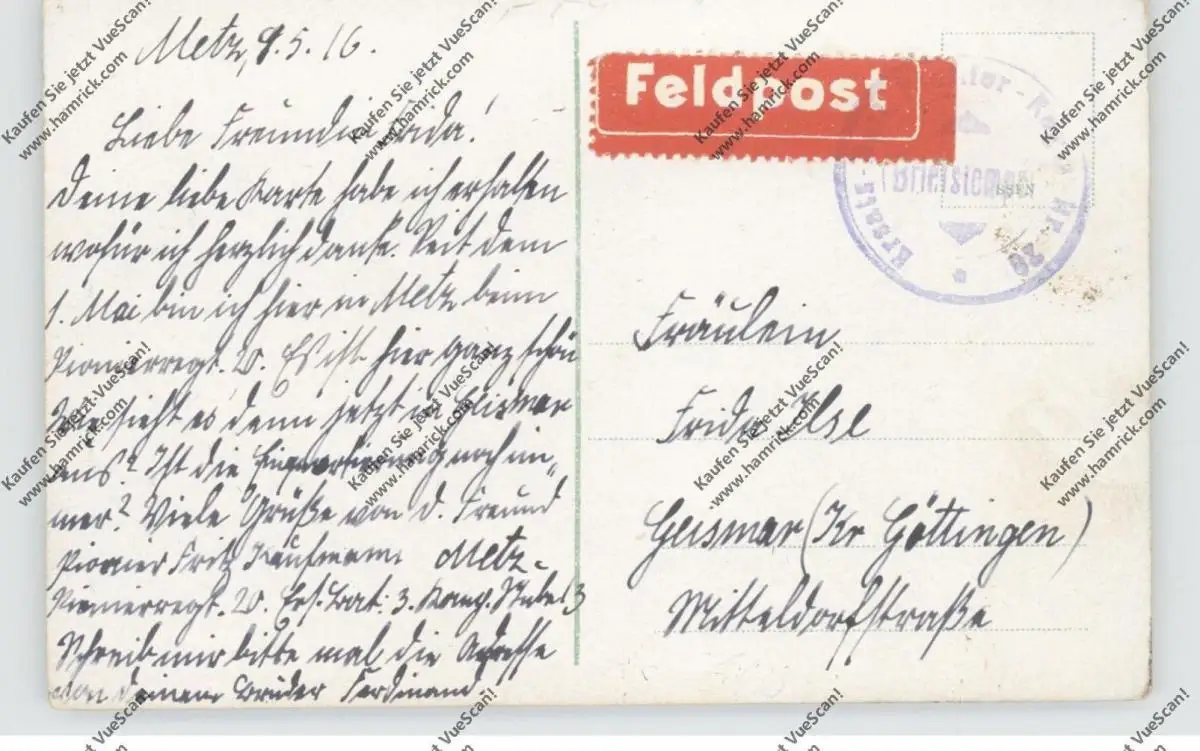 Metz, 8.5.16.
Liebe Freundin Frida!
Deine liebe Karte habe ich erhalten
wofür ich herzlich danke. Seit dem
1. Mai bin ich hier in Metz beim
Pionierregt. 20. Es ist hier ganz schön
Wie sieht es denn jetzt in Geismar
aus? Ist die Einquartierung noch im„
mer? Viele Grüße von d. Freund
Pionier Fritz Kaufmann Metz-
Pionierregt. 20. Ers. Bat: 3. Komp. Stube 3
Schreib mir bitte mal die Adresse
von Deinem Bruder Ferdinand
Feldpost
Ersatz- Nr. 20
Briefstempel
Fräulein
Frida Ilse
Geismar (Kr Göttingen)
Mitteldorfstraße
Kaufen Sie jetzt VueScan!
www.hamrick.com